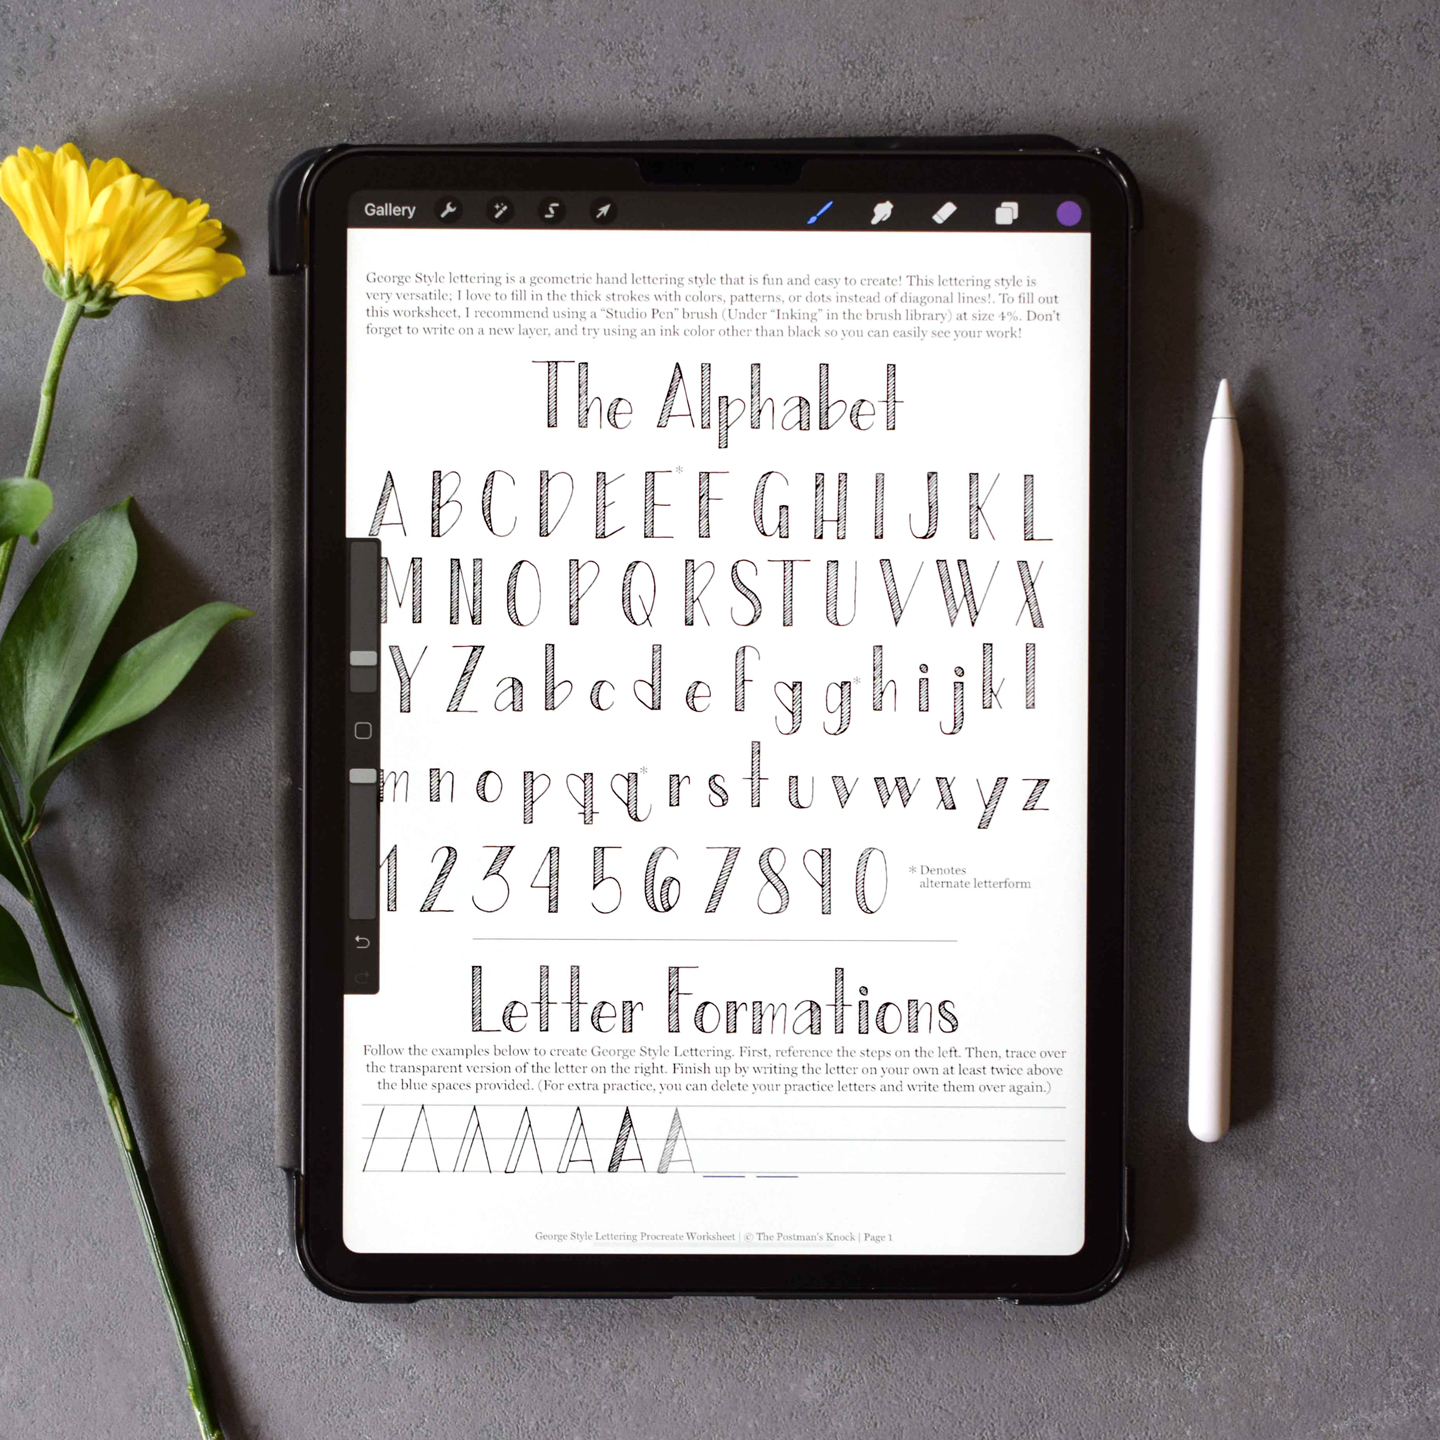 Gallery
George Style lettering is a geometric hand lettering style that is fun and easy to create! This lettering style is
very versatile; I love to fill in the thick strokes with colors, patterns, or dots instead of diagonal lines!. To fill out
this worksheet, I recommend using a “Studio Pen” brush (Under “Inking” in the brush library) at size 4%. Don't
forget to write on a new layer, and try using an ink color other than black so you can easily see your work!
The Alphabet
A B C D E E* F G H I J K L
M N O P Q R S T U V W X
Y Z a b c d e f g g* h i j k l
m n o p q q* r s t u v w x y z
1 2 3 4 5 6 7 8 9 0
* Denotes
alternate letterform
Letter Formations
Follow the examples below to create George Style Lettering. First, reference the steps on the left. Then, trace over
the transparent version of the letter on the right. Finish up by writing the letter on your own at least twice above
the blue spaces provided. (For extra practice, you can delete your practice letters and write them over again.)
A A A A
George Style Lettering Procreate Worksheet | © The Postman's Knock | Page 1